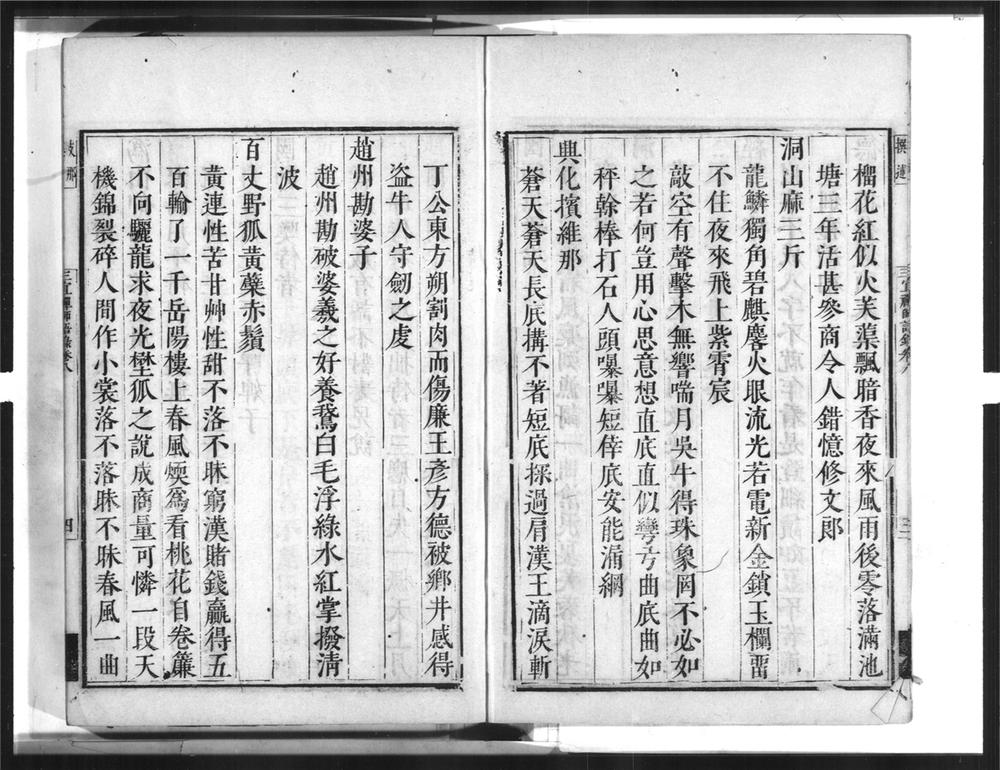 榴花紅似火芙蕖飄暗香夜來風雨後零落滿池
塘三年活甚參商令人錯憶修文郎
洞山麻三斤
龍鱗獨角碧麒麟火眼流光若電新金鎖玉欄畱
不住夜來飛上紫霄宸
敲空有聲擊木無響喘月吳牛得珠象罔不必如
之若何豈用心思意想直底直似彎弓曲底曲如
秤幹棒打石人頭嚗嚗短倖底安能漏網
興化擯維那
蒼天蒼天長底搆不著短底探過肩漢王滴淚斬
丁公東方朔割肉而傷廉王彥方德被鄉井感得
盜牛人守劒之處
趙州勘婆子
趙州勘破婆羲之好養鵞白毛浮綠水紅掌撥淸
波
百丈野狐黃蘗赤鬚
黃連性苦甘艸性甜不落不昧窮漢賭錢贏得五
百輸了一千岳陽樓上春風煗爲看桃花自卷簾
不向驪龍求夜光壄狐之說成商量可憐一段天
機錦裂碎人間作小裳落不落昧不昧春風一曲
三宜禪師語錄卷八
四